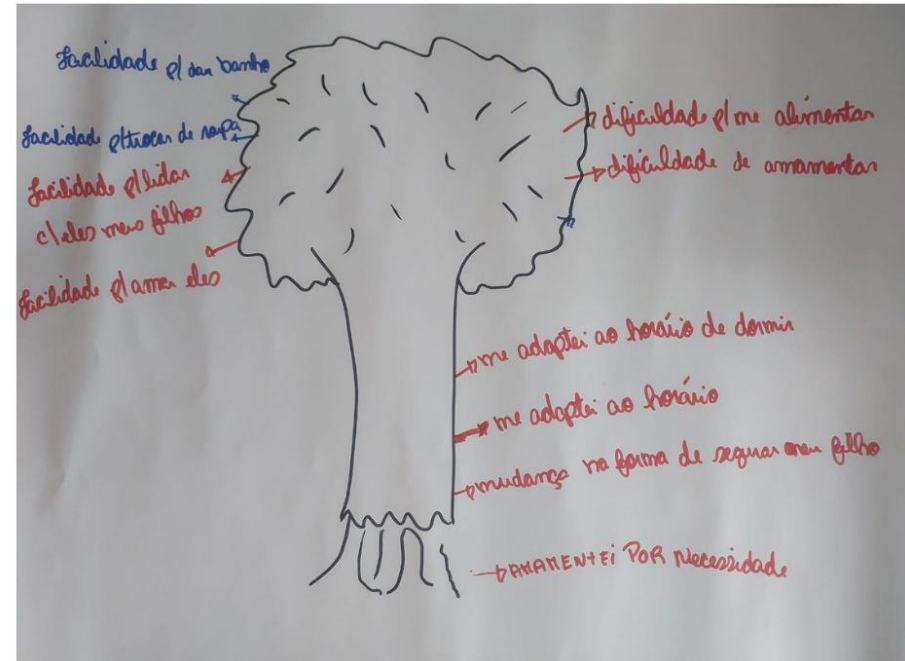 facilidade p/ dar banho
facilidade p/ trocar de roupa
facilidade p/ lidar
c/ eles meus filhos
facilidade p/ amar eles
dificuldade p/ me alimentar
dificuldade de amamentar
me adaptei ao horário de dormir
me adaptei ao horário
mudança na forma de segurar meu filho
AMAMENTEI POR Necessidade